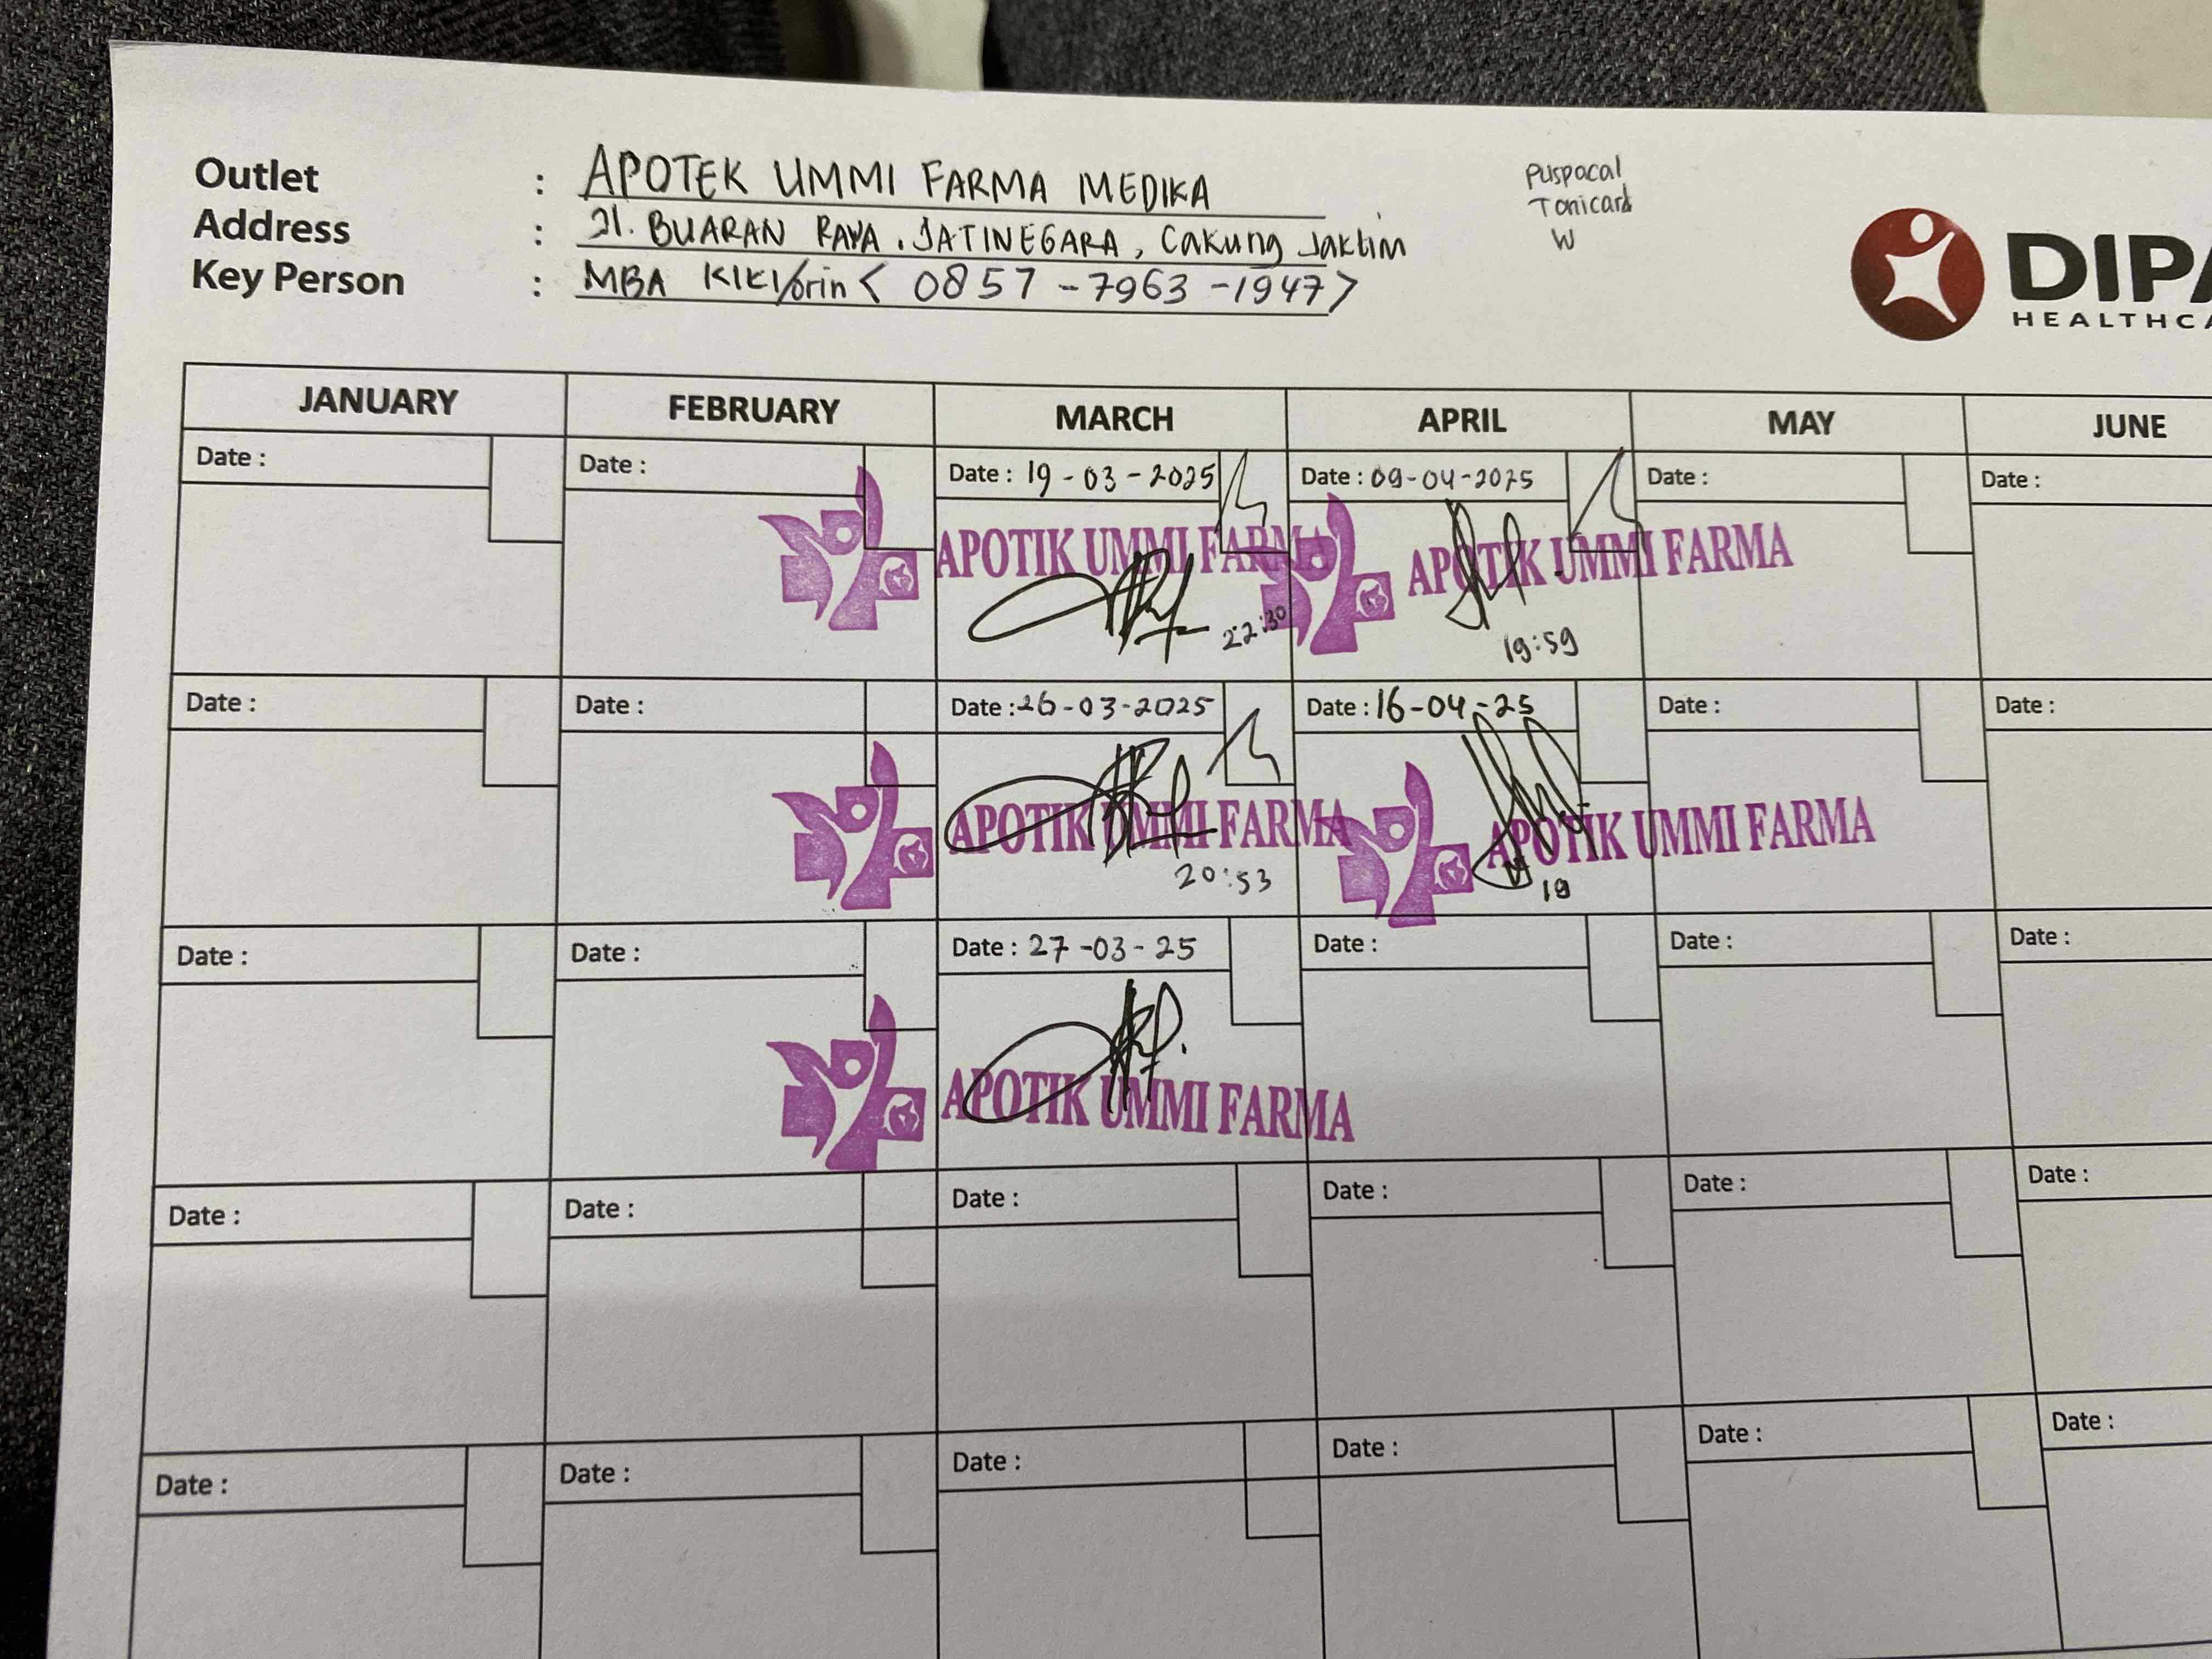 Outlet : APOTEK UMMI FARMA MEDIKA
Address : Jl. BUARAN RAYA, JATINEGARA, Cakung Jaktim
Key Person : MBA KIKI/orin < 0857-7963-1947 >
Puspacal
Tonicard
W
DIPA
HEALTHCA
JANUARY FEBRUARY MARCH APRIL MAY JUNE
Date : Date : Date : 19-03-2025 Date : 09-04-2025 Date : Date :
APOTIK UMMI FARMA APOTIK UMMI FARMA
22:30 19:59
Date : Date : Date : 26-03-2025 Date : 16-04-25 Date : Date :
APOTIK UMMI FARMA APOTIK UMMI FARMA
20:53 19
Date : Date : Date : 27-03-25 Date : Date : Date :
APOTIK UMMI FARMA
Date : Date : Date : Date : Date : Date :
Date : Date : Date : Date : Date : Date :